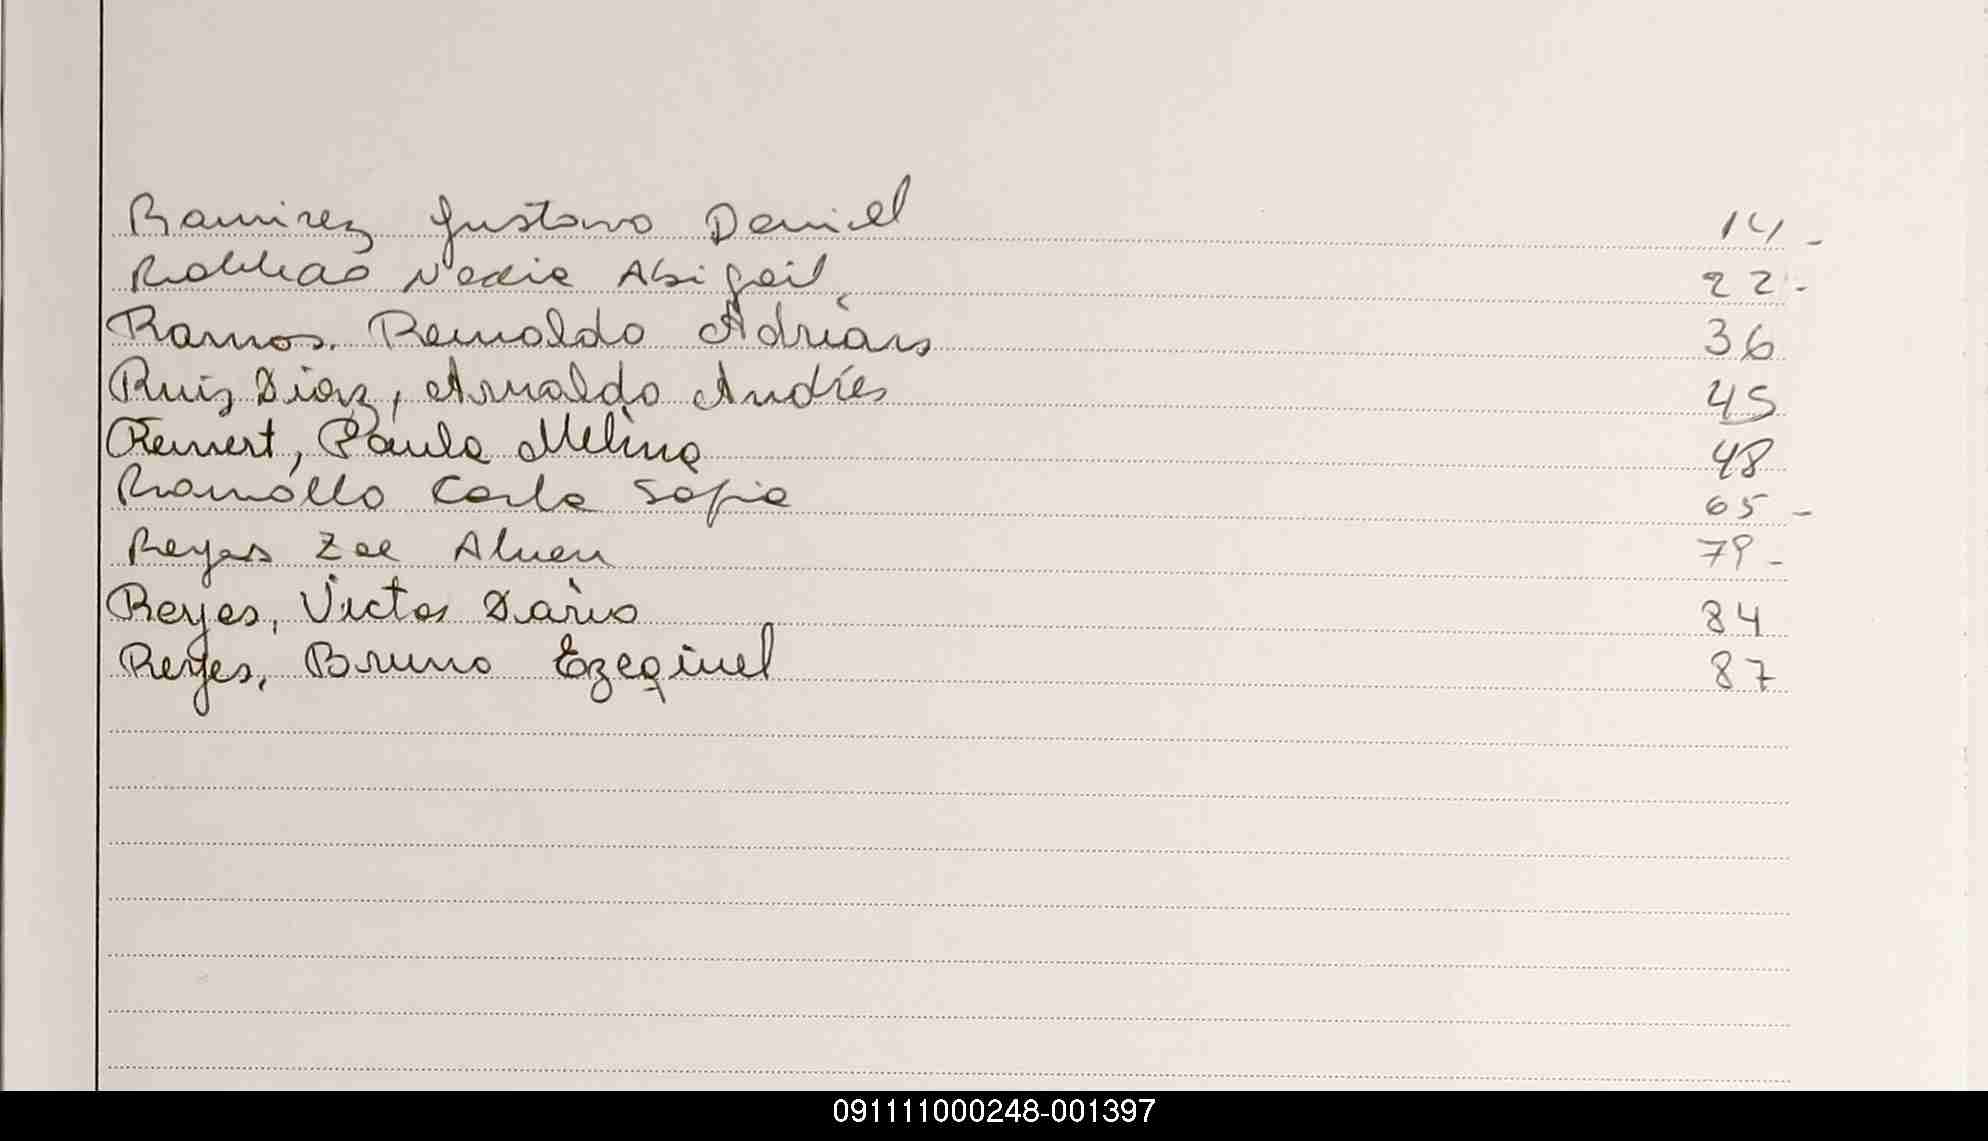 Ramirez Gustavo Daniel 14 -
Nadia Abigail 22 -
Ramos. Reinaldo Adrián 36
Ruiz Diaz, Arnaldo Andrés 45
Reinert, Paula Melina 48
Ramallo Carla Sofia 65 -
Reyes Zoe Ailuen 79 -
Reyes, Victor Darío 84
Reyes, Bruno Ezequiel 87
091111000248-001397